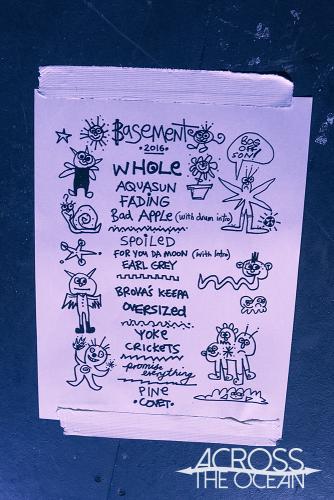 Basement
• 2016 •
BOG
OFF
SON!
WHOLE
AQUASUN
FADING
Bad Apple (with drum intro)
SPOILED
FOR YOU DA MOON (with Intro)
EARL GREY
BROVA'S KEEPA
OVERSIZED
YOKE
CRICKETS
promise
everything
PINE
• COVET •
ACROSS
THE OCEAN